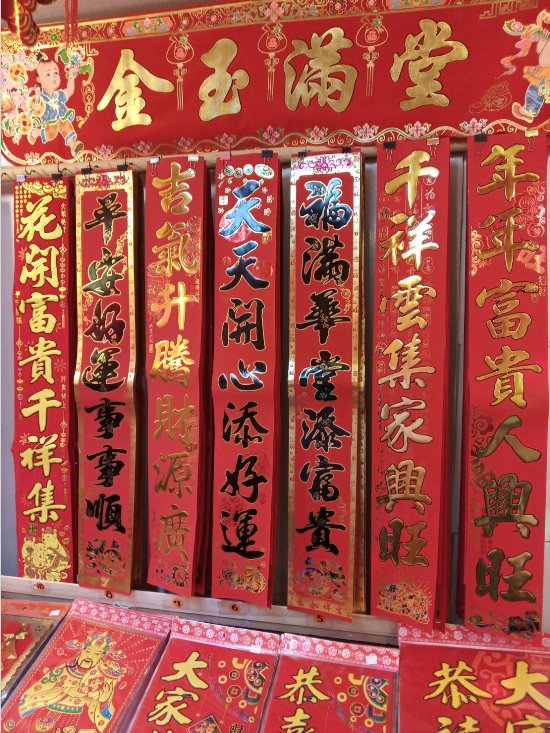 金玉滿堂
花開富貴千祥集
平安好運事事順
吉氣升騰財源廣
天天開心添好運
福滿華堂添富貴
千祥雲集家興旺
年年富貴人興旺
8
7
6
5
大家
恭喜
恭
大